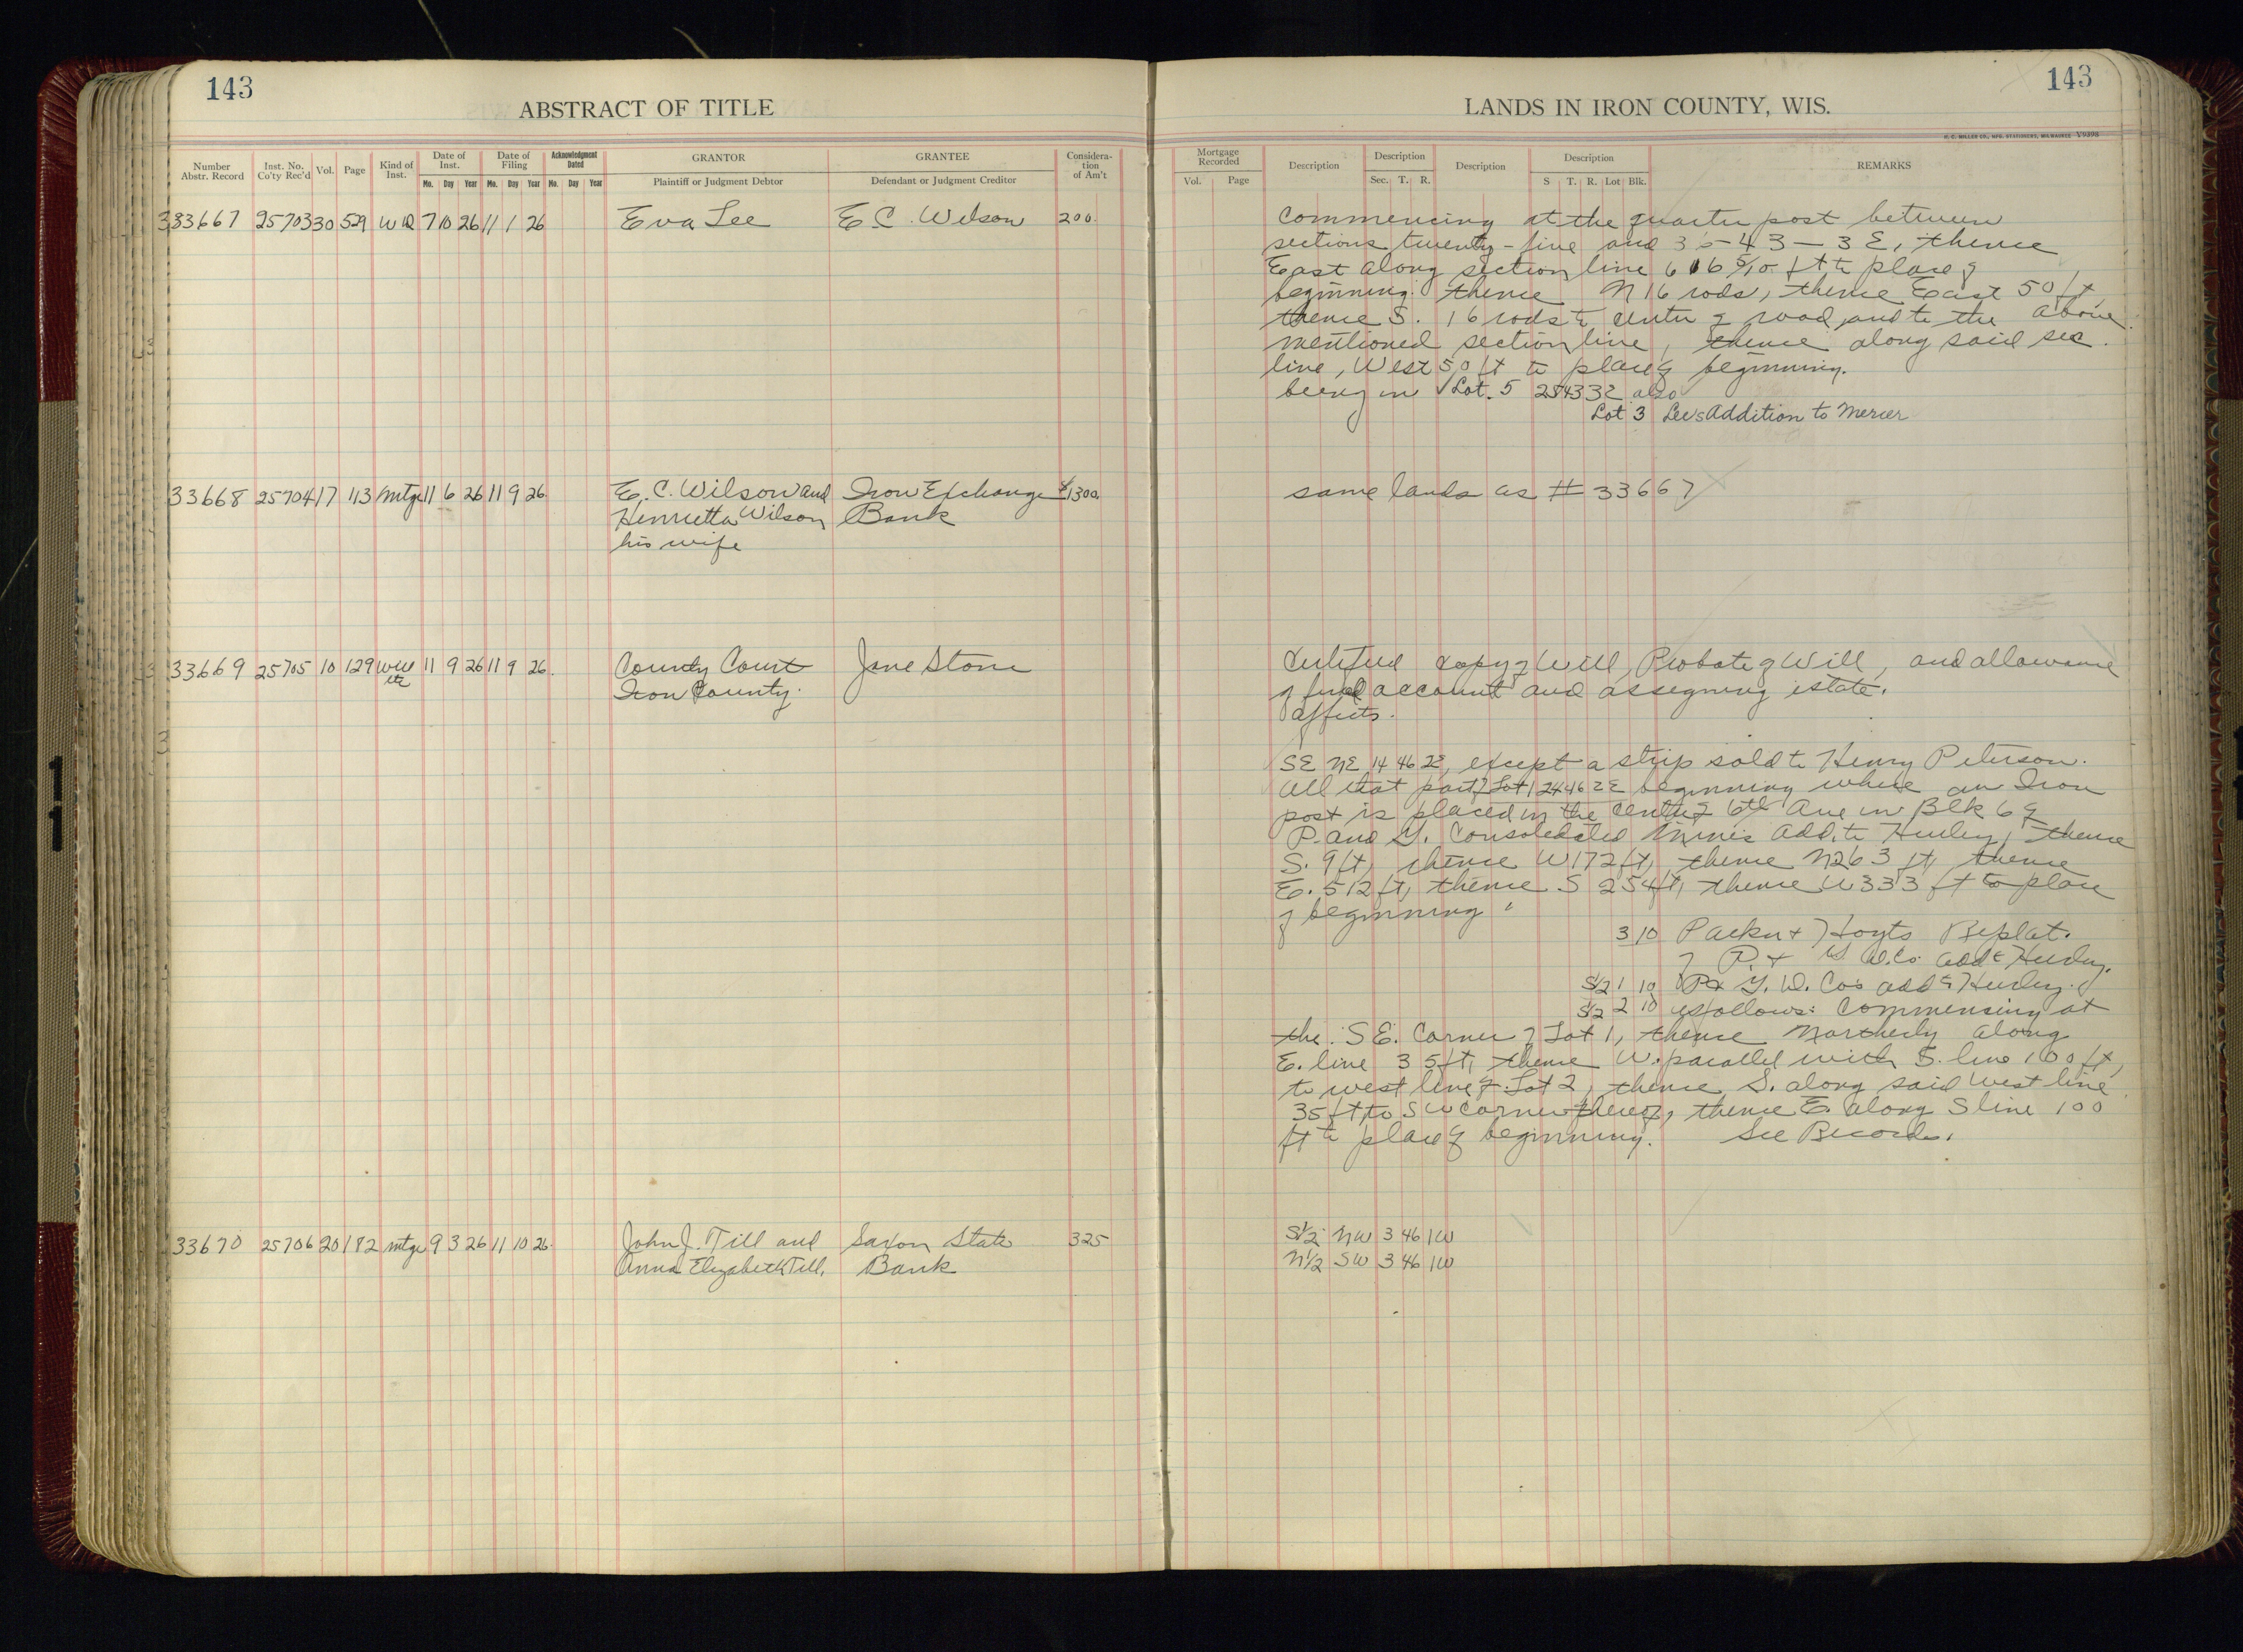 143
ABSTRACT OF TITLE
Number Abstr. Record
Inst. No. Co'ty Rec'd
Vol.
Page
Kind of Inst.
Date of Inst.
Mo. Day Year
Date of Filing
Mo. Day Year
Acknowledgment Dated
Mo. Day Year
GRANTOR
Plaintiff or Judgment Debtor
GRANTEE
Defendant or Judgment Creditor
Considera-tion of Am't
33667 25703 30 529 WD 7 10 26 11 1 26 Eva Lee E C. Wilson 200.
33668 25704 17 113 Mtge 11 6 26 11 9 26 E. C. Wilson and Iron Exchange $1300.
Henrietta Wilson Bank
his wife
33669 25705 10 129 Will 11 9 26 11 9 26 County Court Jane Stone
etc Iron County.
33670 25706 20 182 mtge 9 3 26 11 10 26 John J. Till and Saxon State 325
Anna Elizabeth Till, Bank
143
LANDS IN IRON COUNTY, WIS.
H. C. MILLER CO., MFG. STATIONERS, MILWAUKEE V9398
Mortgage Recorded
Vol. Page
Description
Description
Sec. T. R.
Description
Description
S T. R. Lot Blk.
REMARKS
Commencing at the quarter post between
sections twenty-five and 36-43-3E, thence
East along section line 616 5/10 ft to place of
beginning. thence N 16 rods, thence East 50 ft,
thence S. 16 rods to center of road and to the above
mentioned section line, thence along said sec.
line, West 50 ft to place of beginning.
being in Lot. 5 25 43 3E also
Lot 3 Lees Addition to Mercer
same lands as # 33667
Certified copy of Will, Probate of Will, and allowance
of final account and assigning estate.
affects.
SE NE 14 46 2E, except a strip sold to Henry Peterson.
All that part of Lot 1 24 46 2E beginning where an Iron
post is placed in the center of 6th Ave in Blk 6 of
P. and G. Consolidated Mines Add. to Hurley, thence
S. 9 ft, thence W 172 ft, thence N 263 ft, thence
E. 512 ft, thence S 254 ft, thence W 333 ft to place
of beginning.
3 10 Packer & Hoyts Replat.
of P. & G. D. Co. add to Hurley.
S1/2 1 10 P & G. D. Cos add to Hurley.
S1/2 2 10 as follows: Commencing at
the S E. Corner of Lot 1, thence Northerly along
E. line 35 ft, thence W. parallel with S. line 100 ft,
to west line of Lot 2, thence S. along said West line
35 ft, to SW corner thereof, thence E. along S line 100
ft to place of beginning. See Records.
S1/2 NW 3 46 1W
N1/2 SW 3 46 1W